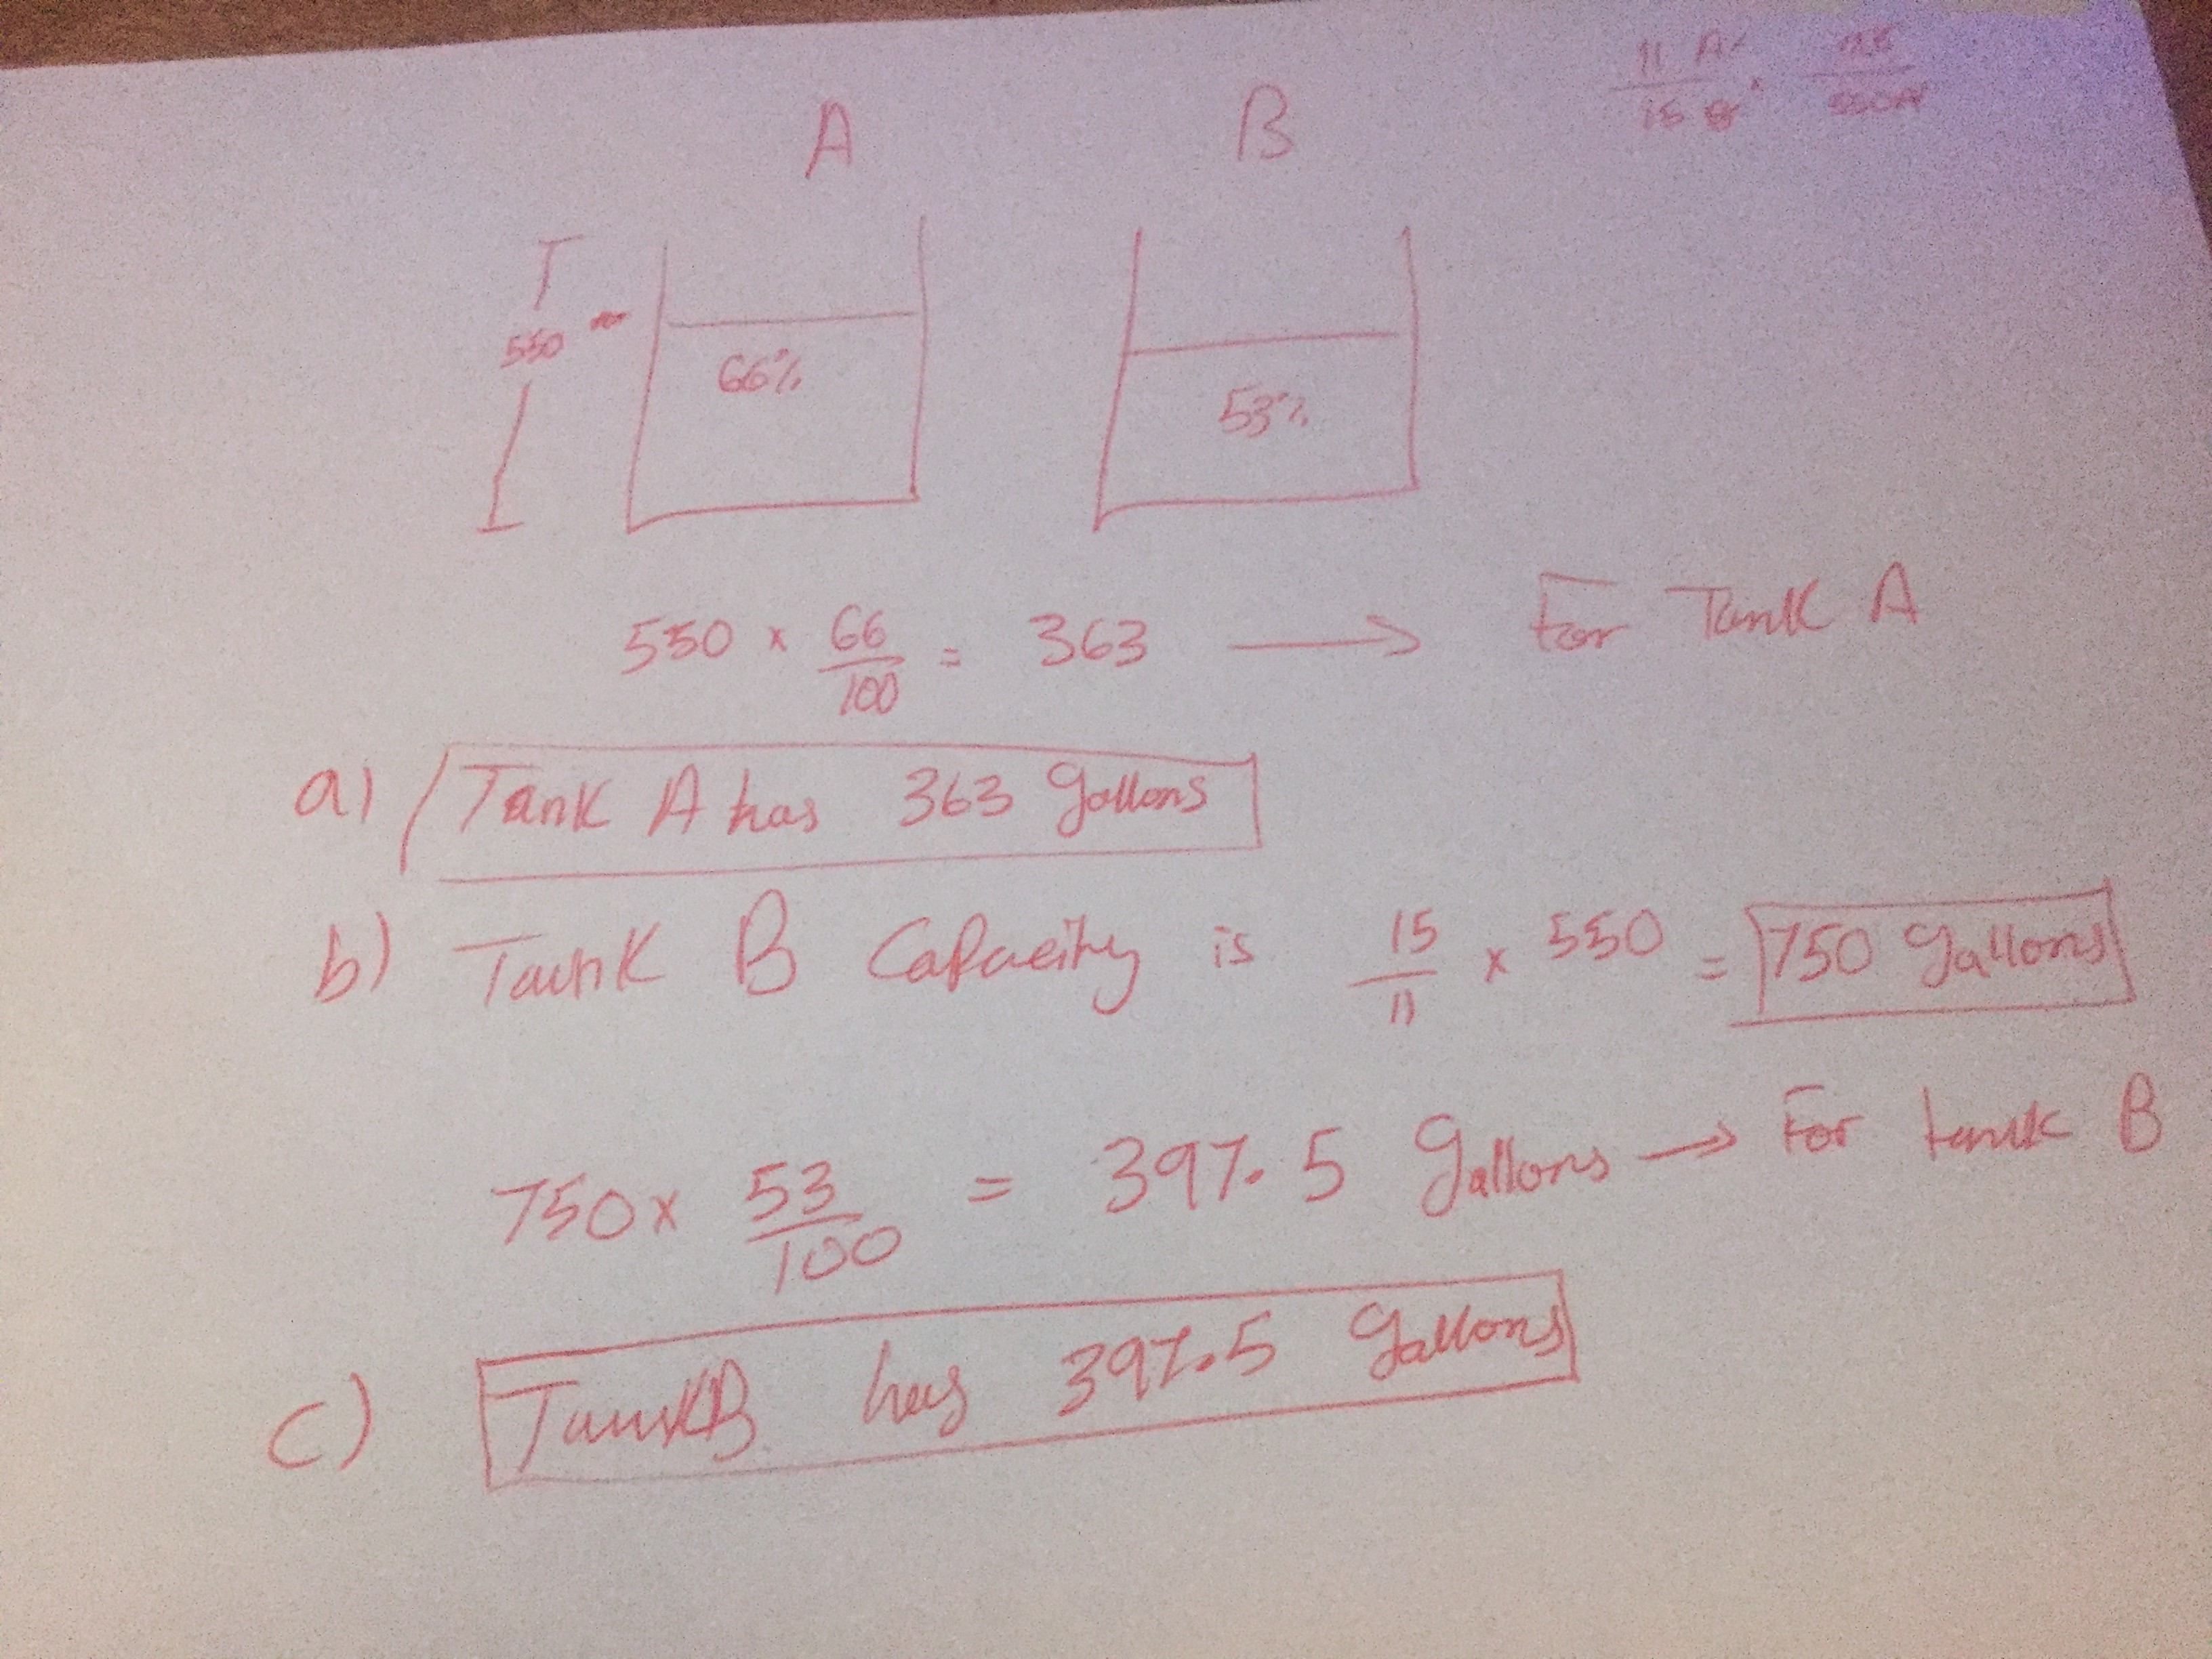 11 A
15
A B
550
66%
53%
550 × 66/100 = 363 → For Tank A
a) Tank A has 363 gallons
b) Tank B Capacity is 15/11 × 550 = 750 gallons
750 × 53/100 = 397.5 Gallons → For tank B
c) Tank B has 397.5 gallons